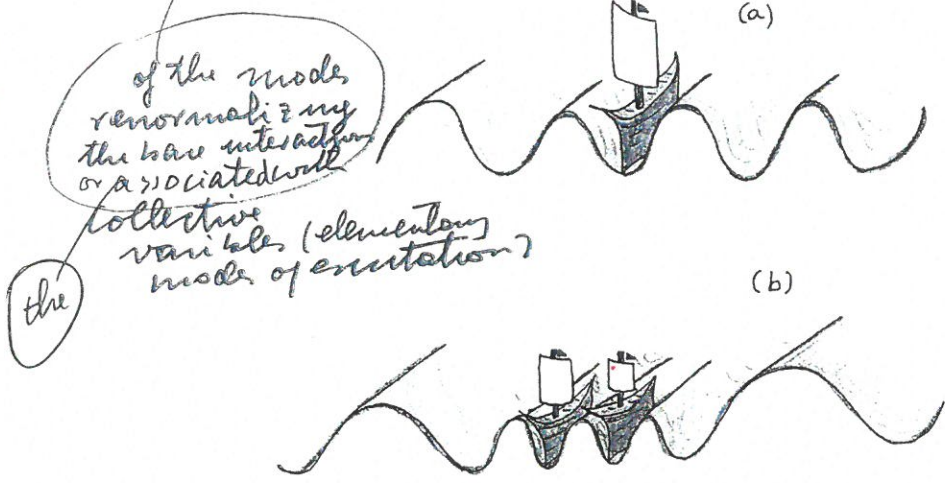 (a)
of the modes
renormalizing
the bare interaction
or associated with
collective
variables (elementary
modes of excitation)
the
(b)